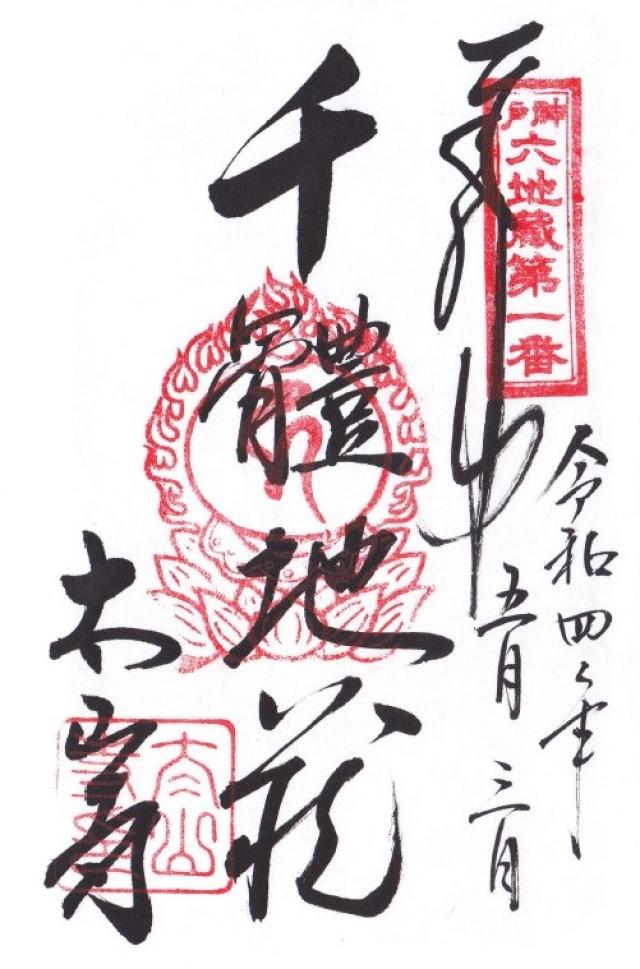 神戸六地藏第一番
令和四年
五月三日
奉拝
千體地蔵
太山寺